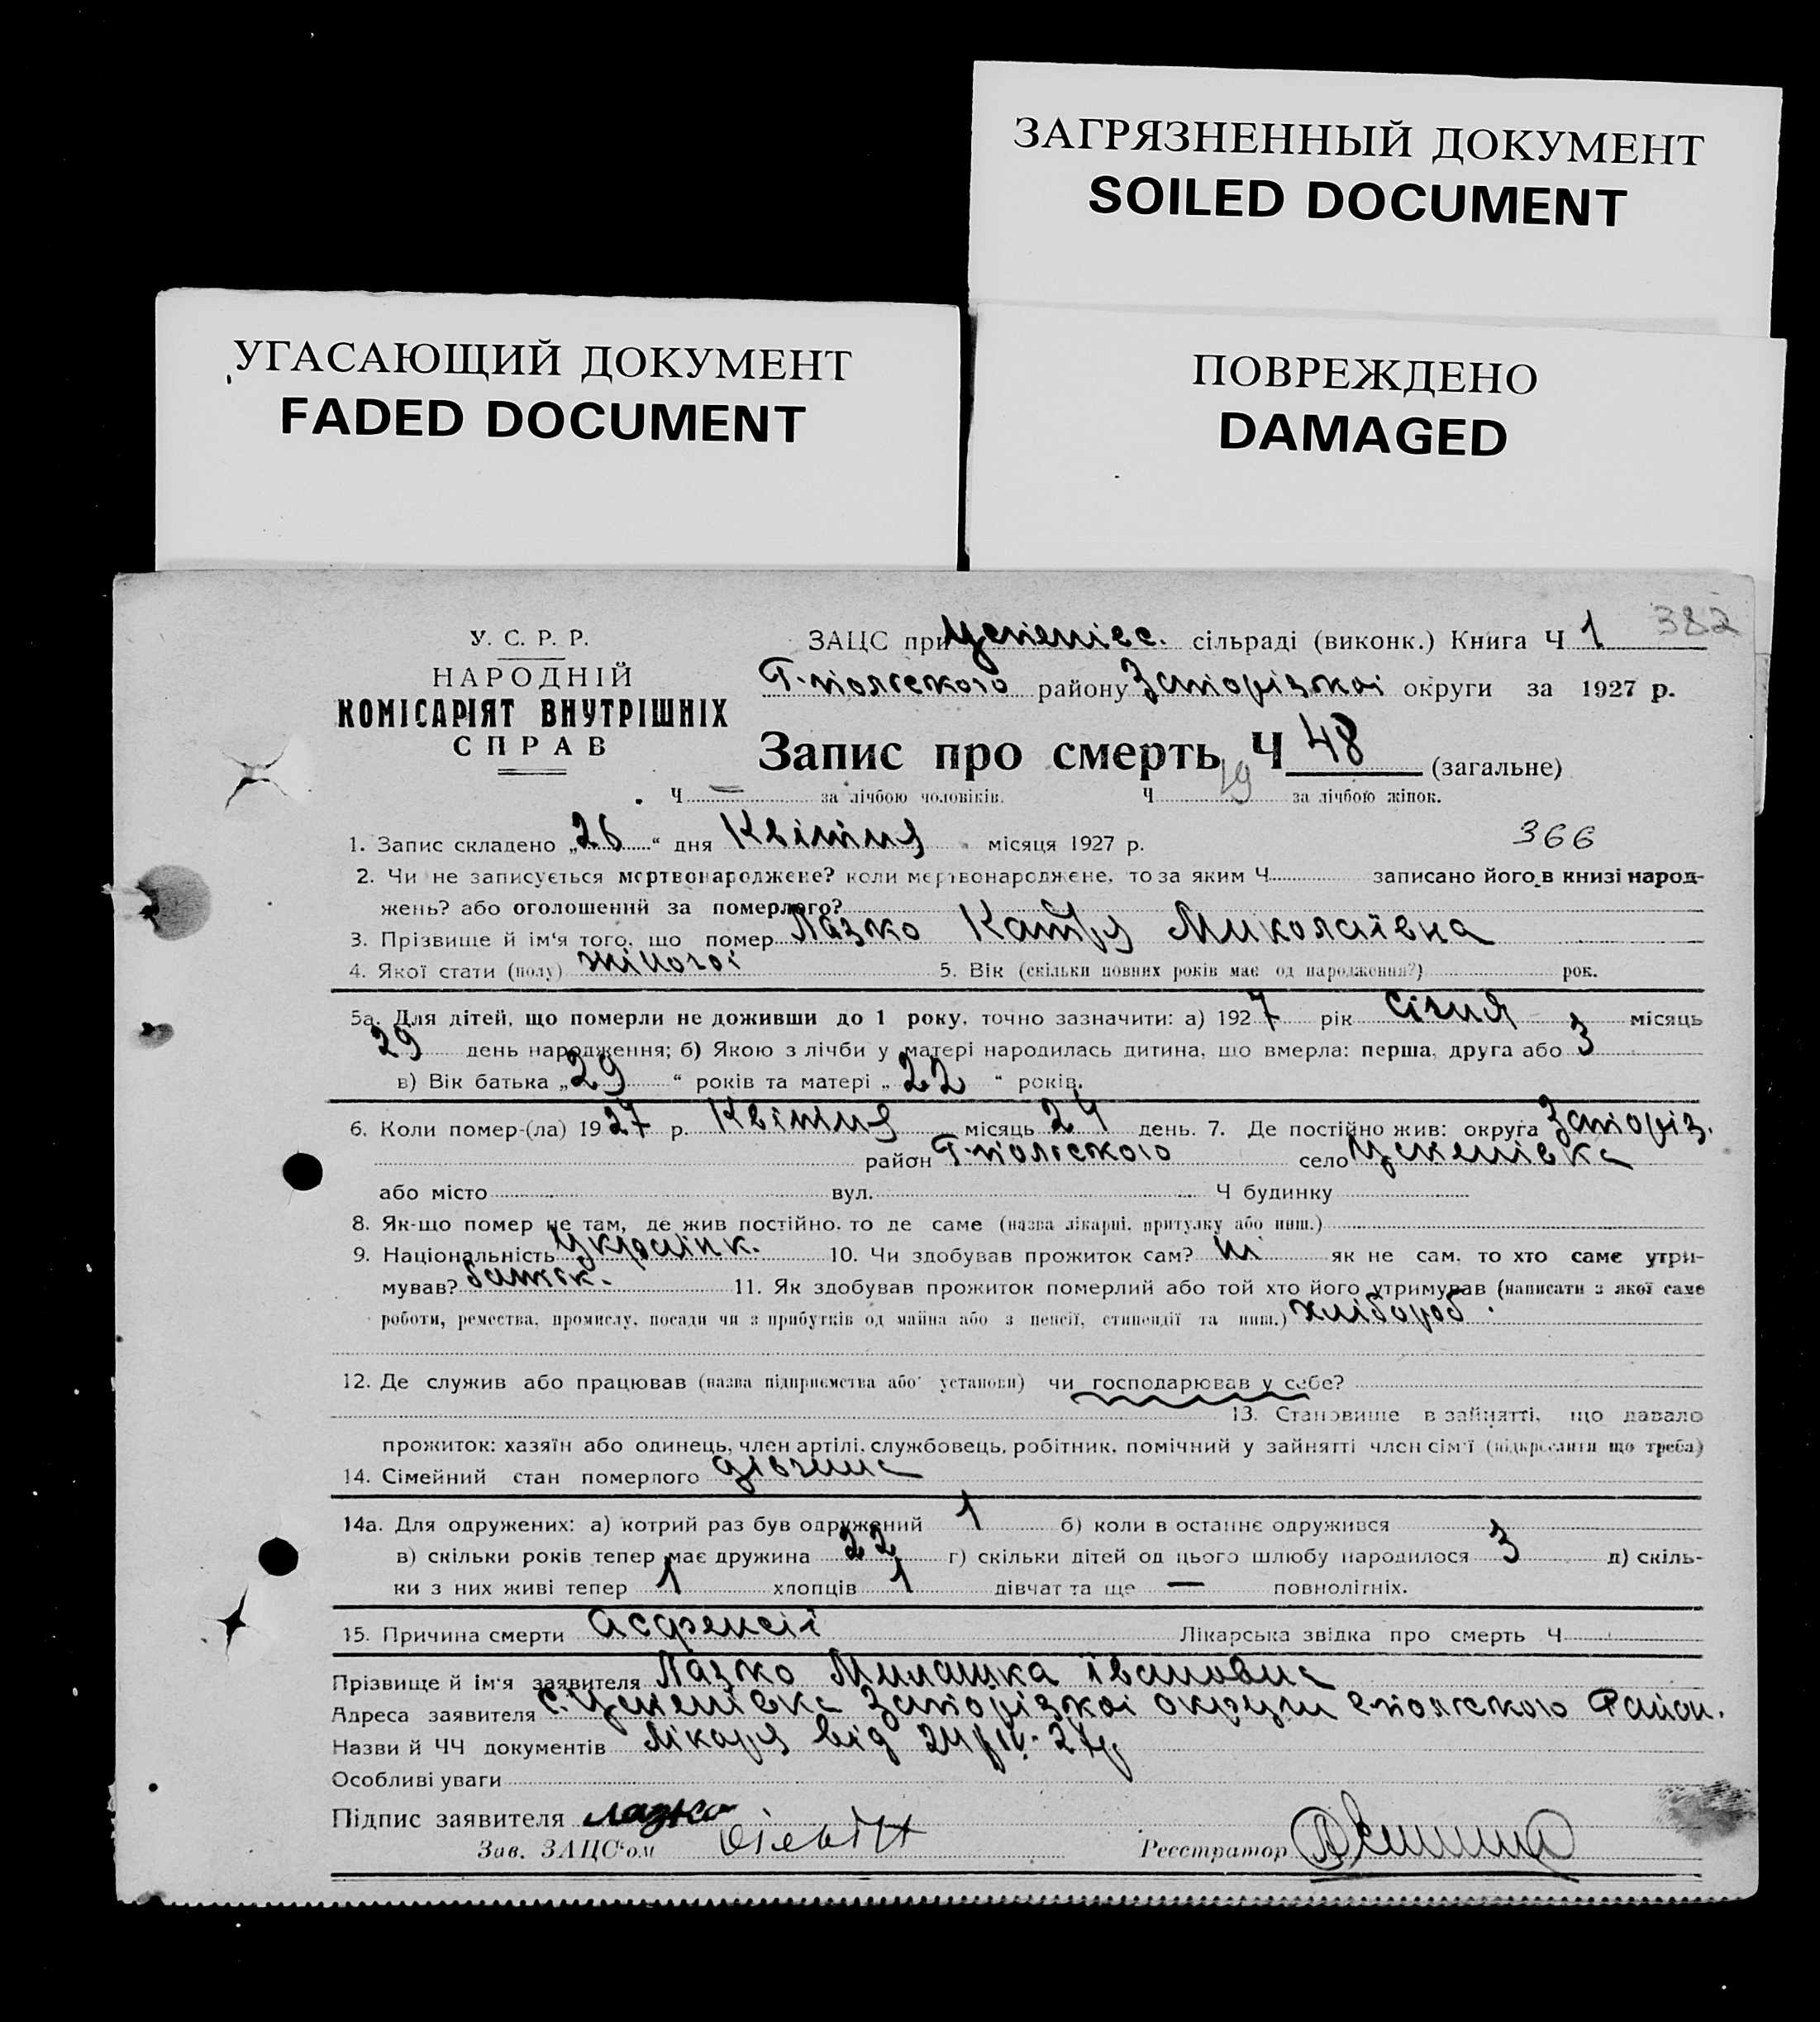 ЗАГРЯЗНЕННЫЙ ДОКУМЕНТ
SOILED DOCUMENT
УГАСАЮЩИЙ ДОКУМЕНТ
FADED DOCUMENT
ПОВРЕЖДЕНО
DAMAGED
382
У. С. Р. Р.
НАРОДНІЙ
КОМІСАРІЯТ ВНУТРІШНІХ
СПРАВ
ЗАЦС при Успенівс. сільраді (виконк.) Книга Ч 1
Г-польського району Запорізької округи за 1927 р.
Запис про смерть Ч 48 (загальне)
Ч — за лічбою чоловіків. Ч 19 за лічбою жінок.
1. Запис складено „26“ дня Квітня місяця 1927 р. 366
2. Чи не записується мертвонароджене? коли мертвонароджене, то за яким Ч записано його в книзі народ-
жень? або оголошений за померлого?
3. Прізвище й ім'я того, що помер Лазко Катря Миколаївна
4. Якої стати (полу) жіночої 5. Вік (скільки повних років має од народження?) рок.
5а. Для дітей, що померли не доживши до 1 року, точно зазначити: а) 1927 рік січня місяць
29 день народження; б) Якою з лічби у матері народилась дитина, що вмерла: перша, друга або 3
в) Вік батька „29“ років та матері „22“ років.
6. Коли помер-(ла) 1927 р. Квітня місяць 24 день. 7. Де постійно жив: округа Запоріз.
район Г-польського село Успенівка
або місто вул. Ч будинку
8. Як-що помер не там, де жив постійно, то де саме (назва лікарні, притулку або инш.)
9. Національність Українк. 10. Чи здобував прожиток сам? ні як не сам, то хто саме утри-
мував? батьк. 11. Як здобував прожиток померлий або той хто його утримував (написати з якої саме
роботи, ремества, промислу, посади чи з прибутків од майна або з пенсії, стипендії та инш.) хлібороб.
12. Де служив або працював (назва підприємства або установи) чи господарював у себе?
13. Становище в зайнятті, що давало
прожиток: хазяїн або одинець, член артілі, службовець, робітник, помічний у зайнятті член сім'ї (підкреслити що треба)
14. Сімейний стан померлого дівчина
14а. Для одружених: а) котрий раз був одружений 1 б) коли в останнє одружився
в) скільки років тепер має дружина 22 г) скільки дітей од цього шлюбу народилося 3 д) скіль-
ки з них живі тепер 1 хлопців 1 дівчат та ще — повнолітніх.
15. Причина смерти Асфіксії Лікарська звідка про смерть Ч
Прізвище й ім'я заявителя Лазко Милашка Івановна
Адреса заявителя с. Успенівка Запорізкої округи Г-польского Район.
Назви й ЧЧ документів Лікаря від 24/IV-27р
Особливі уваги
Підпис заявителя Лазко
Зав. ЗАЦС'ом
Реєстратор